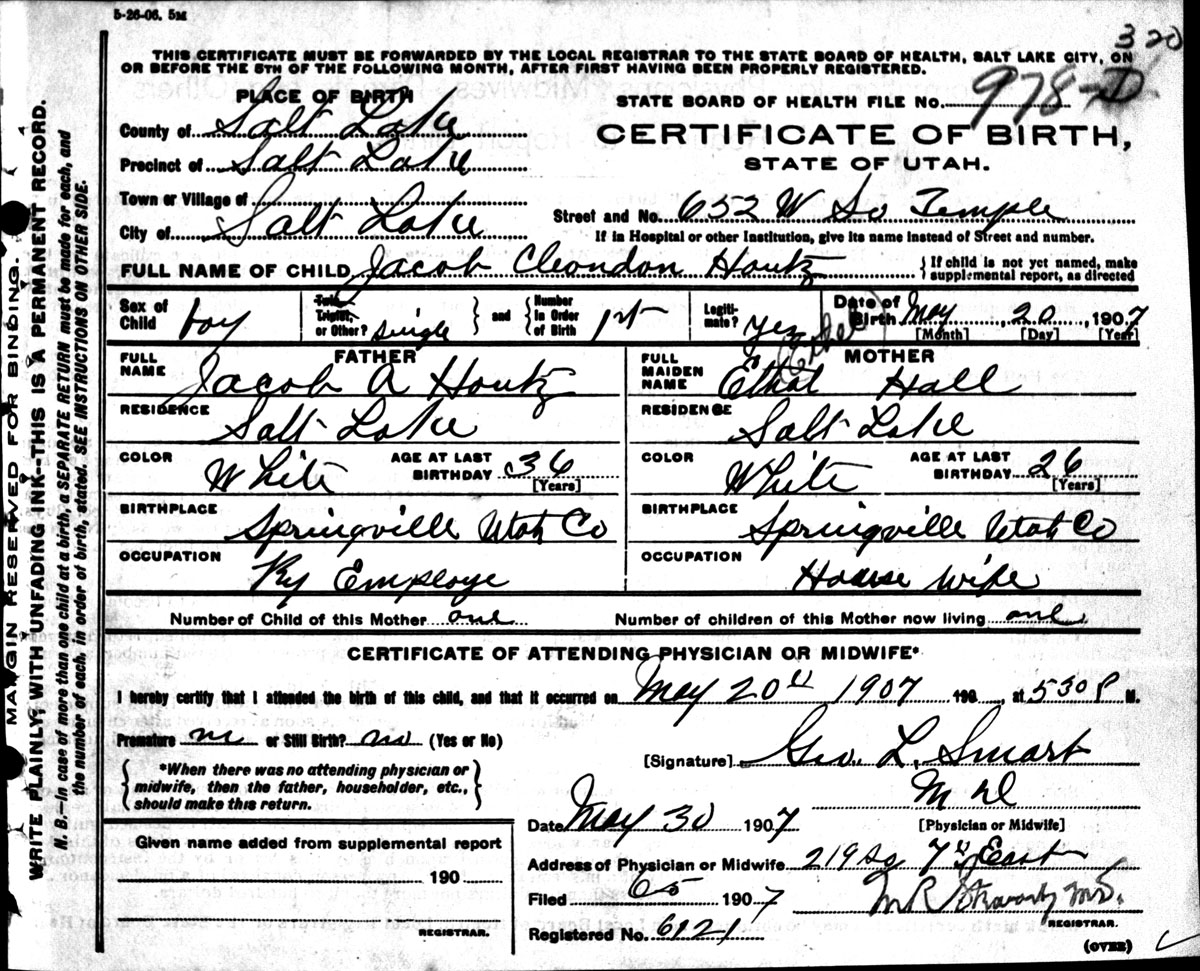 5-26-06. 5M
320
THIS CERTIFICATE MUST BE FORWARDED BY THE LOCAL REGISTRAR TO THE STATE BOARD OF HEALTH, SALT LAKE CITY, ON
OR BEFORE THE 5TH OF THE FOLLOWING MONTH, AFTER FIRST HAVING BEEN PROPERLY REGISTERED.
PLACE OF BIRTH
STATE BOARD OF HEALTH FILE No. 978-D
County of Salt Lake
CERTIFICATE OF BIRTH,
Precinct of Salt Lake
STATE OF UTAH.
Town or Village of
City of Salt Lake
Street and No. 652 W So Temple
If in Hospital or other Institution, give its name instead of Street and number.
FULL NAME OF CHILD Jacob Cleondon Houtz { If child is not yet named, make supplemental report, as directed
Sex of Child boy
Twin, Triplet, or Other? single } and { Number in Order of Birth 1st
Legitimate? yes
Date of Birth May 20, 1907
[Month] [Day] [Year]
FATHER
MOTHER
(Ethel)
FULL NAME Jacob A Houtz
FULL MAIDEN NAME Ethol Hall
RESIDENCE Salt Lake
RESIDENCE Salt Lake
COLOR White AGE AT LAST BIRTHDAY 36 [Years]
COLOR White AGE AT LAST BIRTHDAY 26 [Years]
BIRTHPLACE Springville Utah Co
BIRTHPLACE Springville Utah Co
OCCUPATION Ry Employe
OCCUPATION House wife
Number of Child of this Mother one
Number of children of this Mother now living one
CERTIFICATE OF ATTENDING PHYSICIAN OR MIDWIFE*
I hereby certify that I attended the birth of this child, and that it occurred on May 20th 1907 190 , at 530 P M.
Premature no or Still Birth? no (Yes or No)
[Signature] Geo. L. Smart
M D
[Physician or Midwife]
{ *When there was no attending physician or midwife, then the father, householder, etc., should make this return. }
Date May 30 1907
Given name added from supplemental report
190
REGISTRAR.
Address of Physician or Midwife 219 So 7th East
Filed 6 5 1907
REGISTRAR.
Registered No. 6121
(OVER)
MARGIN RESERVED FOR BINDING.
WRITE PLAINLY, WITH UNFADING INK--THIS IS A PERMANENT RECORD.
N. B.—In case of more than one child at a birth, a SEPARATE RETURN must be made for each, and
the number of each, in order of birth, stated. SEE INSTRUCTIONS ON OTHER SIDE.